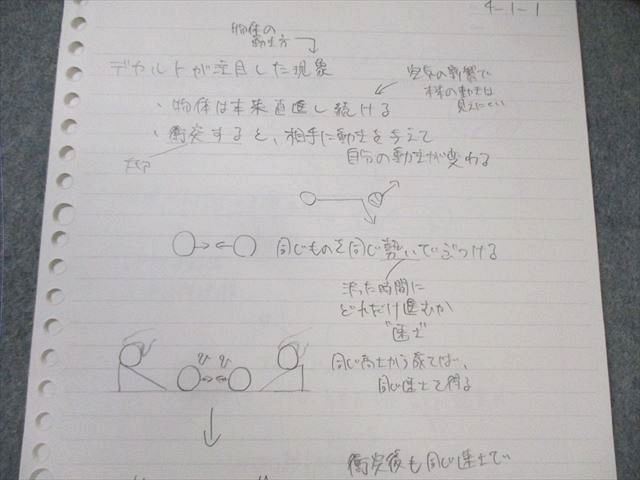 4-1-1
物体の
動き方
デカルトが注目した現象
・物体は本来直進し続ける
空気の影響で
本来の動きは
見えにくい
・衝突すると、相手に動きを与えて
自分の動きが変わる
同じものを同じ勢いでぶつける
決った時間に
どれだけ進むか
"速さ"
v v
同じ高さから落とせば、
同じ速さを得る
衝突後も同じ速さで